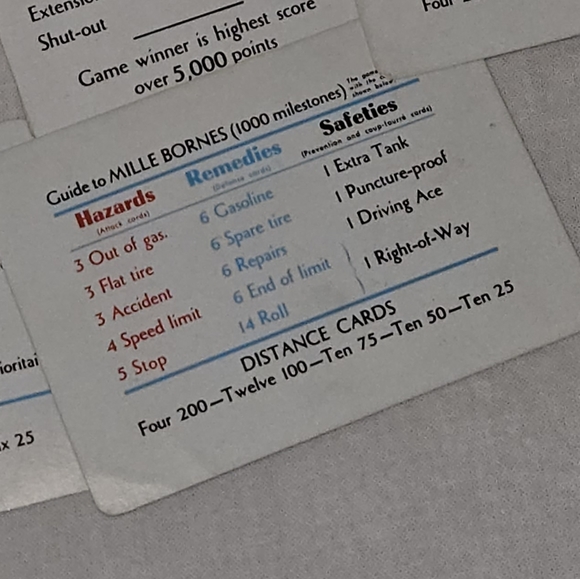 Extensio
Shut-out
Game winner is highest score
over 5,000 points
Four
Guide to MILLE BORNES (1000 milestones)
Hazards Remedies Safeties
(Attack cards) (Defense cards) (Prevention and coup-fourré cards)
3 Out of gas. 6 Gasoline 1 Extra Tank
3 Flat tire 6 Spare tire 1 Puncture-proof
3 Accident 6 Repairs 1 Driving Ace
4 Speed limit 6 End of limit 1 Right-of-Way
5 Stop 14 Roll
DISTANCE CARDS
Four 200—Twelve 100—Ten 75—Ten 50—Ten 25
ioritai
x 25